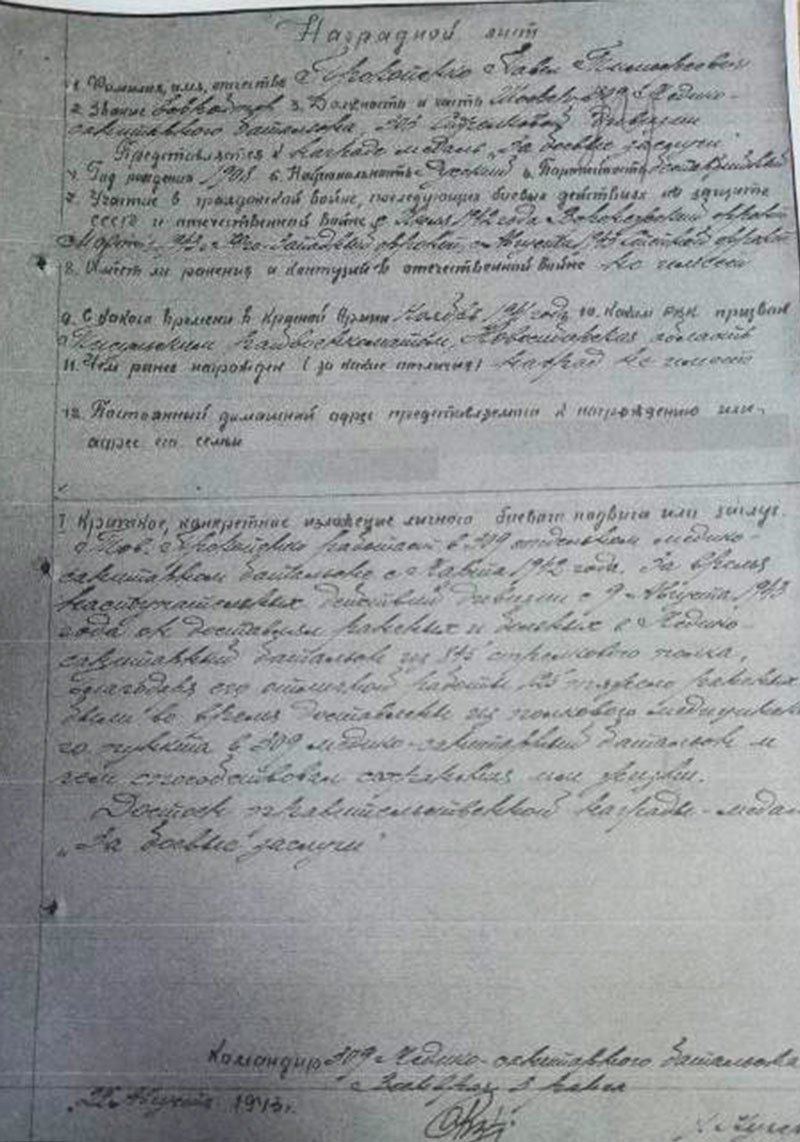 Наградной лист
1. Фамилия, имя, отчество Прокопенко Павел Тимофеевич
2. Звание 3. Должность и часть 309 Медико-
санитарного батальона, Стрелковой Дивизии
Представляется к награде медаль „За боевые заслуги"
4. Год рождения 1908 5. Национальность Русский 6. Партийность беспартийный
7. Участие в гражданской войне, последующих боевых действиях по защите
СССР и отечественной войне с Июля 1942 года Воронежский фронт
Март 1943 г. Юго-Западный фронт, с Августа 1943 Степной фронт
8. Имеет ли ранения и контузии в отечественной войне не имеет
9. С какого времени в Красной Армии 1941 году 10. Каким РВК призван
райвоенкоматом, Новосибирская область
11. Чем ранее награжден (за какие отличия) наград не имеет
12. Постоянный домашний адрес представляемого к награждению или
адрес его семьи
I Краткое, конкретное изложение личного боевого подвига или заслуг.
Тов. работает в 309 отдельном медико-
санитарном батальоне с 1942 года. За время
наступательных действий дивизии с 9 Августа 1943
года он доставлял раненых и больных в Медико-
санитарный батальон из стрелкового полка,
благодаря его отличной работы, 25 тяжело раненых
были во время доставлены из полкового медицинско-
го пункта в 309 медико-санитарный батальон и
тем способствовал сохранения им жизни.
Достоин правительственной награды - медаль
„За боевые заслуги"
Командир 309 Медико-санитарного батальона
22 Августа 1943 г.